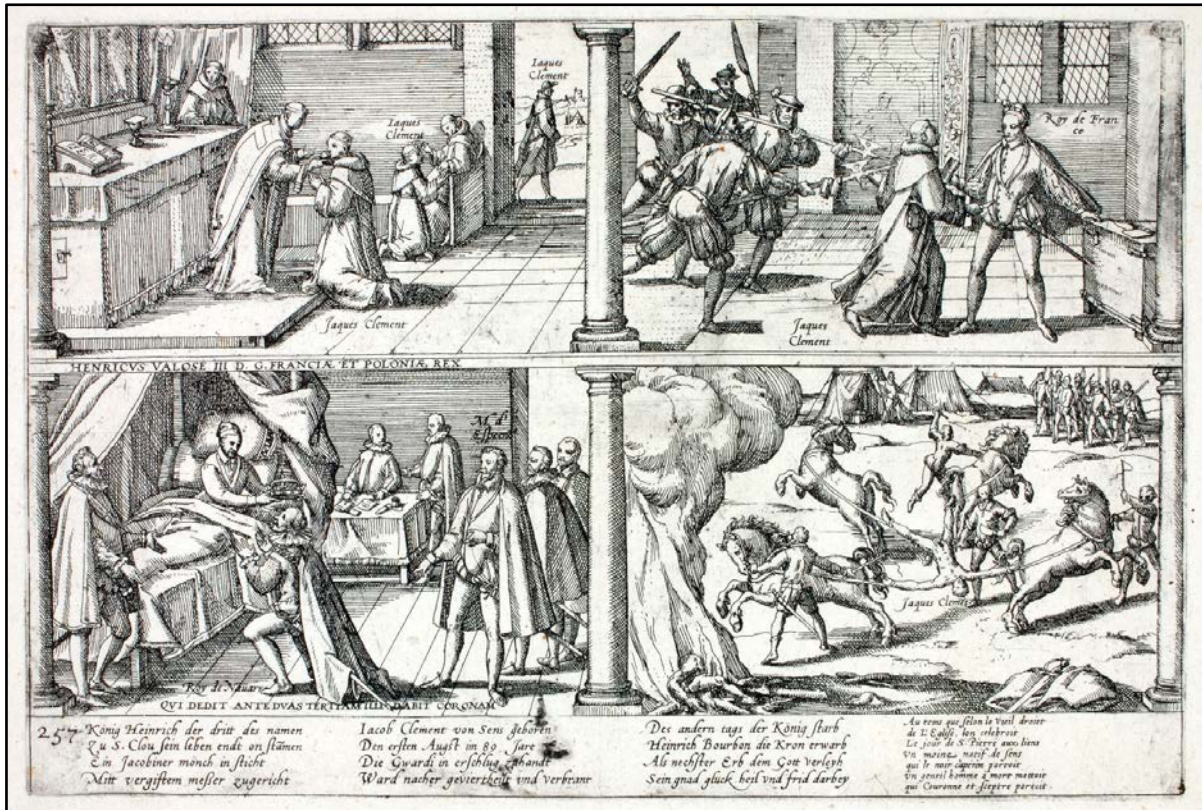 Iaques
Clement
Iaques
Clement
Jaques Clement
Roy de Fran
ce
Jaques
Clement
HENRICVS VALOSE III D. G. FRANCIÆ ET POLONIÆ REX
M. d'
Roy de Nauare
QVI DEDIT ANTE DVAS TERTIAM DABIT CORONAM
Jaques Clemet
257
König Heinrich der dritt des namen
Zu S. Clou sein leben endt on stamen
Ein Jacobiner mönch in sticht
Mitt vergiftem meßer zugericht
Iacob Clement von Sens geboren
Den ersten Augst im 89. Jare
Die Gwardi in erschlug zhandt
Ward nacher geviertheilt vnd verbrant
Des andern tags der König starb
Heinrich Bourbon die Kron erwarb
Als nechster Erb dem Gott verleyh
Sein gnad glück heil vnd frid darbey
Au tems que selon le vieil droict
de L'Eglise, lon celebroit
Le jour de S. Pierre aux liens
Vn moine natif de sens
qui le noir caperon portoit
Vn gentil homme à mort mettoit
qui Couronne et sceptre portoit.